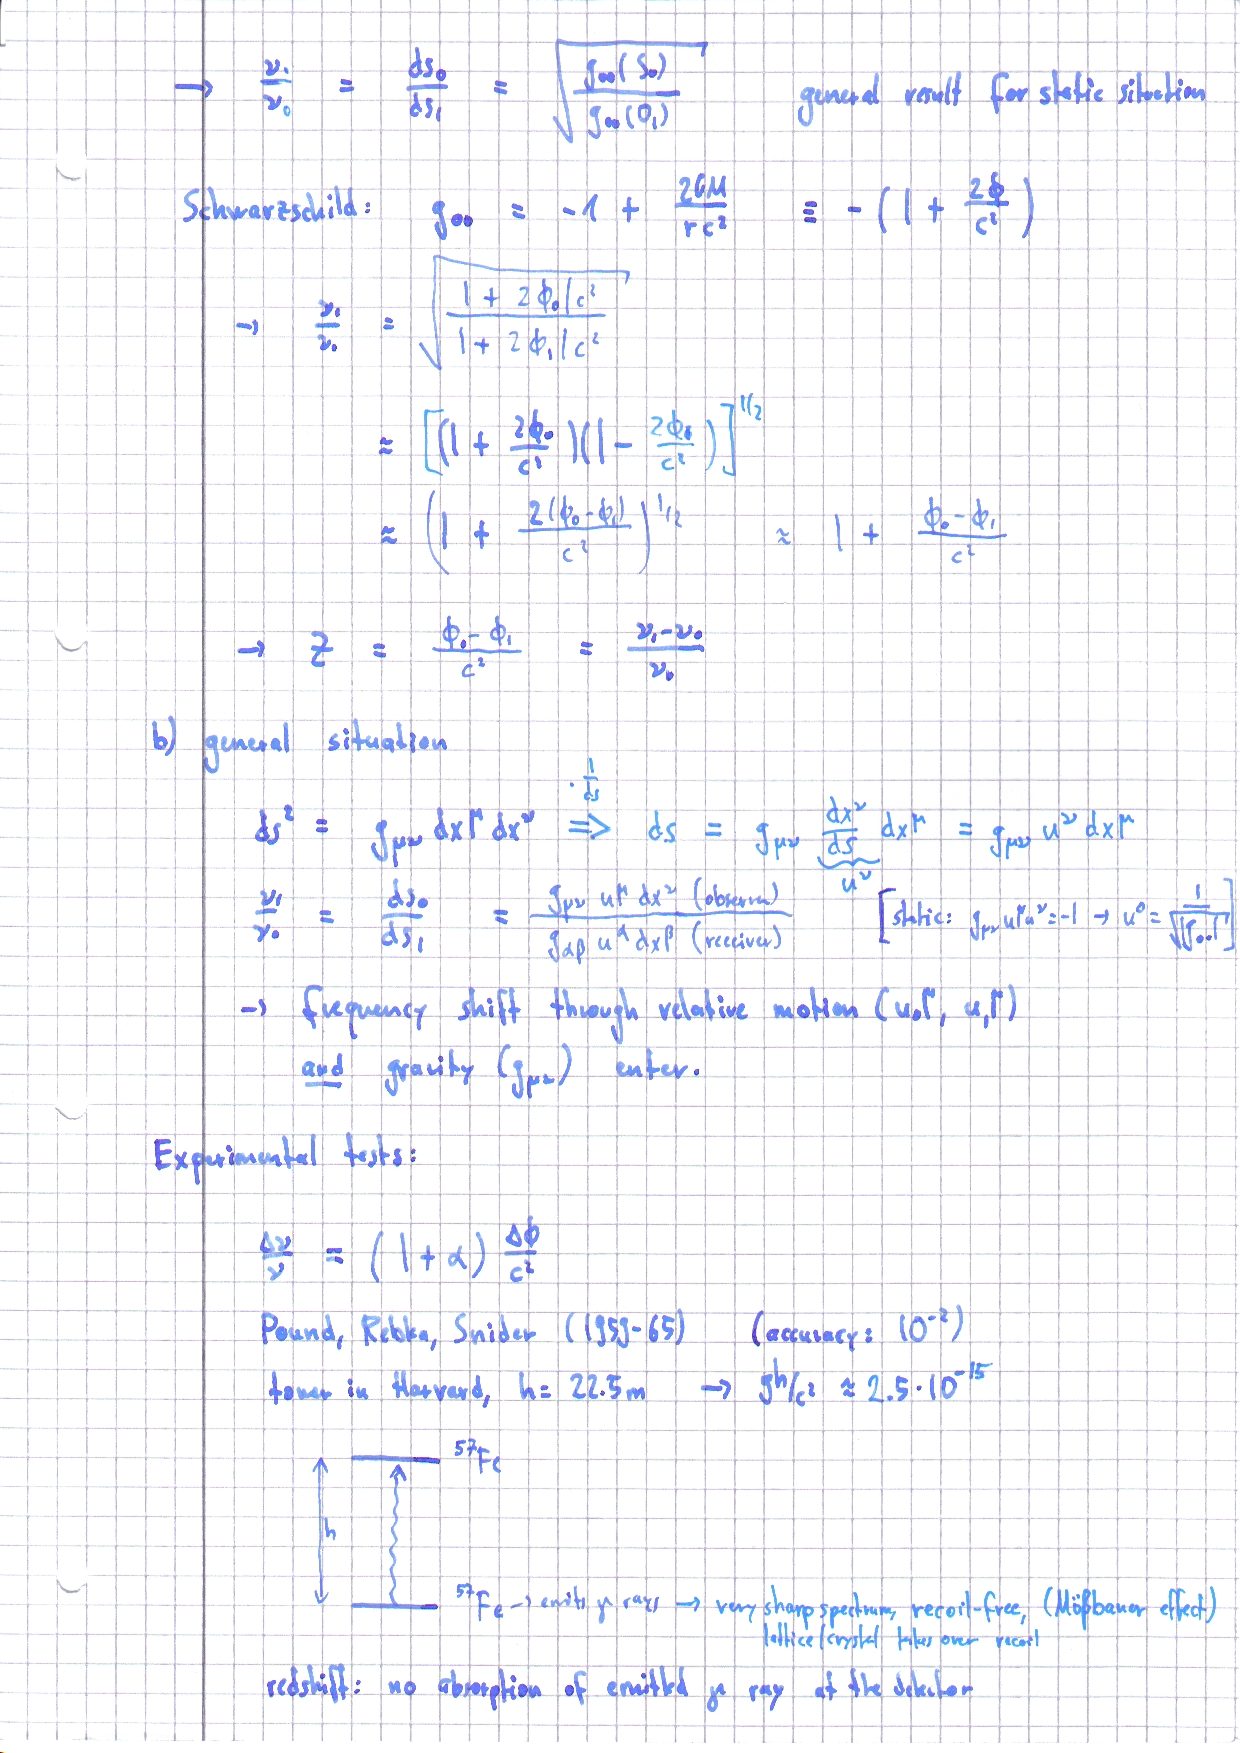 → ν₁/ν₀ = ds₀/ds₁ = √(g₀₀(S₀)/g₀₀(O₁)) general result for static situation
Schwarzschild: g₀₀ = -1 + 2GM/rc² ≡ -(1 + 2ϕ/c²)
→ ν₁/ν₀ = √((1 + 2ϕ₀/c²)/(1 + 2ϕ₁/c²))
≈ [(1 + 2ϕ₀/c²)(1 - 2ϕ₁/c²)]^1/2
≈ (1 + 2(ϕ₀-ϕ₁)/c²)^1/2 ≈ 1 + (ϕ₀-ϕ₁)/c²
→ Z = (ϕ₀-ϕ₁)/c² = (ν₁-ν₀)/ν₀
b) general situation
ds² = g_μν dx^μ dx^ν ⇒ (· 1/ds) ds = g_μν dx^ν/ds dx^μ = g_μν u^ν dx^μ
u^ν
ν₁/ν₀ = ds₀/ds₁ = g_μν u^μ dx^ν (observer) / g_αβ u^α dx^β (receiver) [static: g_μν u^μ u^ν = -1 → u⁰ = 1/√|g₀₀|]
→ frequency shift through relative motion (u₀^μ, u₁^μ)
and gravity (g_μν) enter.
Experimental tests:
Δν/ν = (1 + α) Δϕ/c²
Pound, Rebka, Snider (1959-65) (accuracy: 10⁻²)
tower in Harvard, h = 22.5m → gh/c² ≈ 2.5·10⁻¹⁵
⁵⁷Fe
h
⁵⁷Fe → emits γ rays → very sharp spectrum, recoil-free, (Mößbauer effect)
lattice/crystal takes over recoil
redshift: no absorption of emitted γ ray at the detector